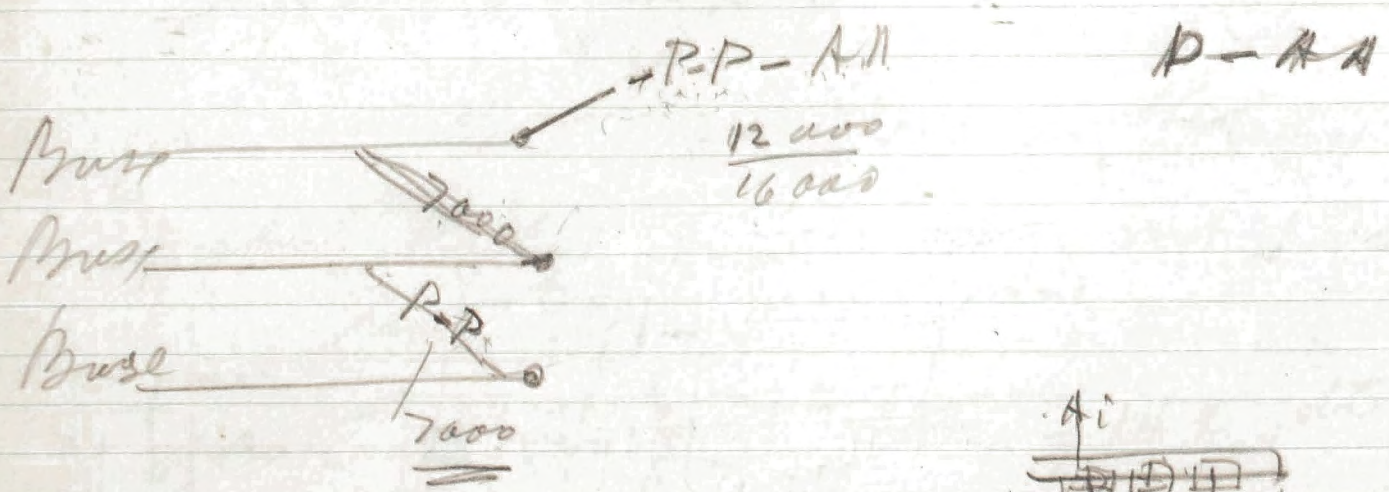 P-P - AA
D - AA
Base
12 000
16 000
7000
Base
P-P
Base
7000
Ai